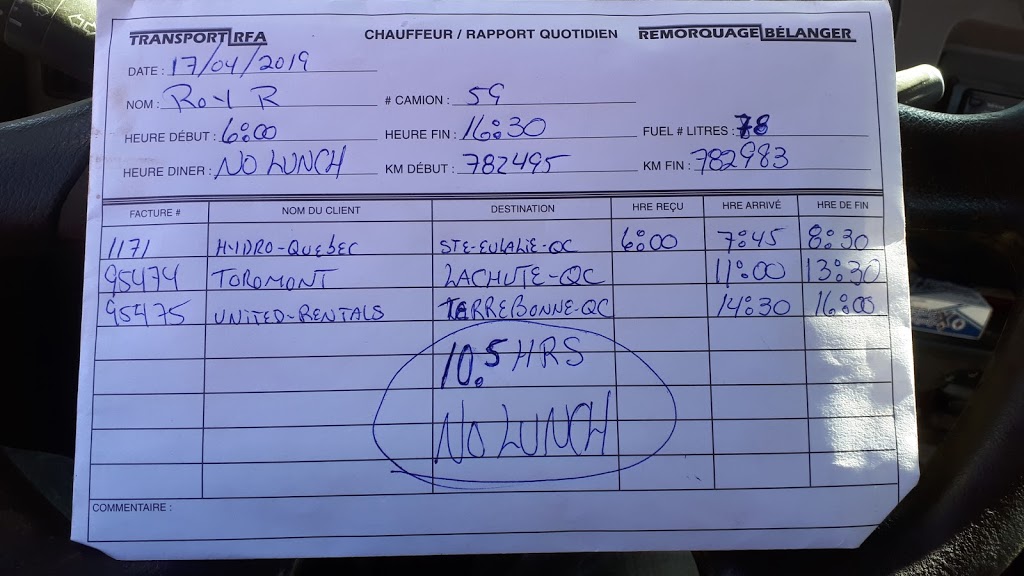 TRANSPORT RFA CHAUFFEUR / RAPPORT QUOTIDIEN REMORQUAGE BÉLANGER
DATE : 17/04/2019
NOM : Roy R # CAMION : 59
HEURE DÉBUT : 6:00 HEURE FIN : 16:30 FUEL # LITRES : 78
HEURE DINER : NO LUNCH KM DÉBUT : 782495 KM FIN : 782983
FACTURE # NOM DU CLIENT DESTINATION HRE REÇU HRE ARRIVÉ HRE DE FIN
1171 HYDRO-QUEBEC STE-EULALIE-QC 6:00 7:45 8:30
95474 TOROMONT LACHUTE-QC 11:00 13:30
95475 UNITED-RENTALS TERREBONNE-QC 14:30 16:00
10.5 HRS
NO LUNCH
COMMENTAIRE :